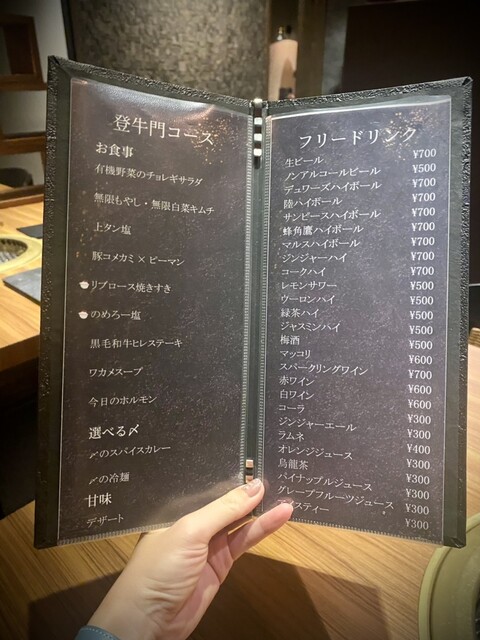 登牛門コース
お食事
有機野菜のチョレギサラダ
無限もやし・無限白菜キムチ
上タン塩
豚コメカミ×ピーマン
リブロース焼きすき
のめろー塩
黒毛和牛ヒレステーキ
ワカメスープ
今日のホルモン
選べる〆
〆のスパイスカレー
〆の冷麺
甘味
デザート
フリードリンク
生ビール ¥700
ノンアルコールビール ¥500
デュワーズハイボール ¥700
陸ハイボール ¥700
サンピースハイボール ¥700
蜂角鷹ハイボール ¥700
マルスハイボール ¥700
ジンジャーハイ ¥700
コークハイ ¥700
レモンサワー ¥500
ウーロンハイ ¥500
緑茶ハイ ¥500
ジャスミンハイ ¥500
梅酒 ¥500
マッコリ ¥600
スパークリングワイン ¥700
赤ワイン ¥600
白ワイン ¥600
コーラ ¥300
ジンジャーエール ¥300
ラムネ ¥400
オレンジジュース ¥300
烏龍茶 ¥300
パイナップルジュース ¥300
グレープフルーツジュース ¥300
¥300